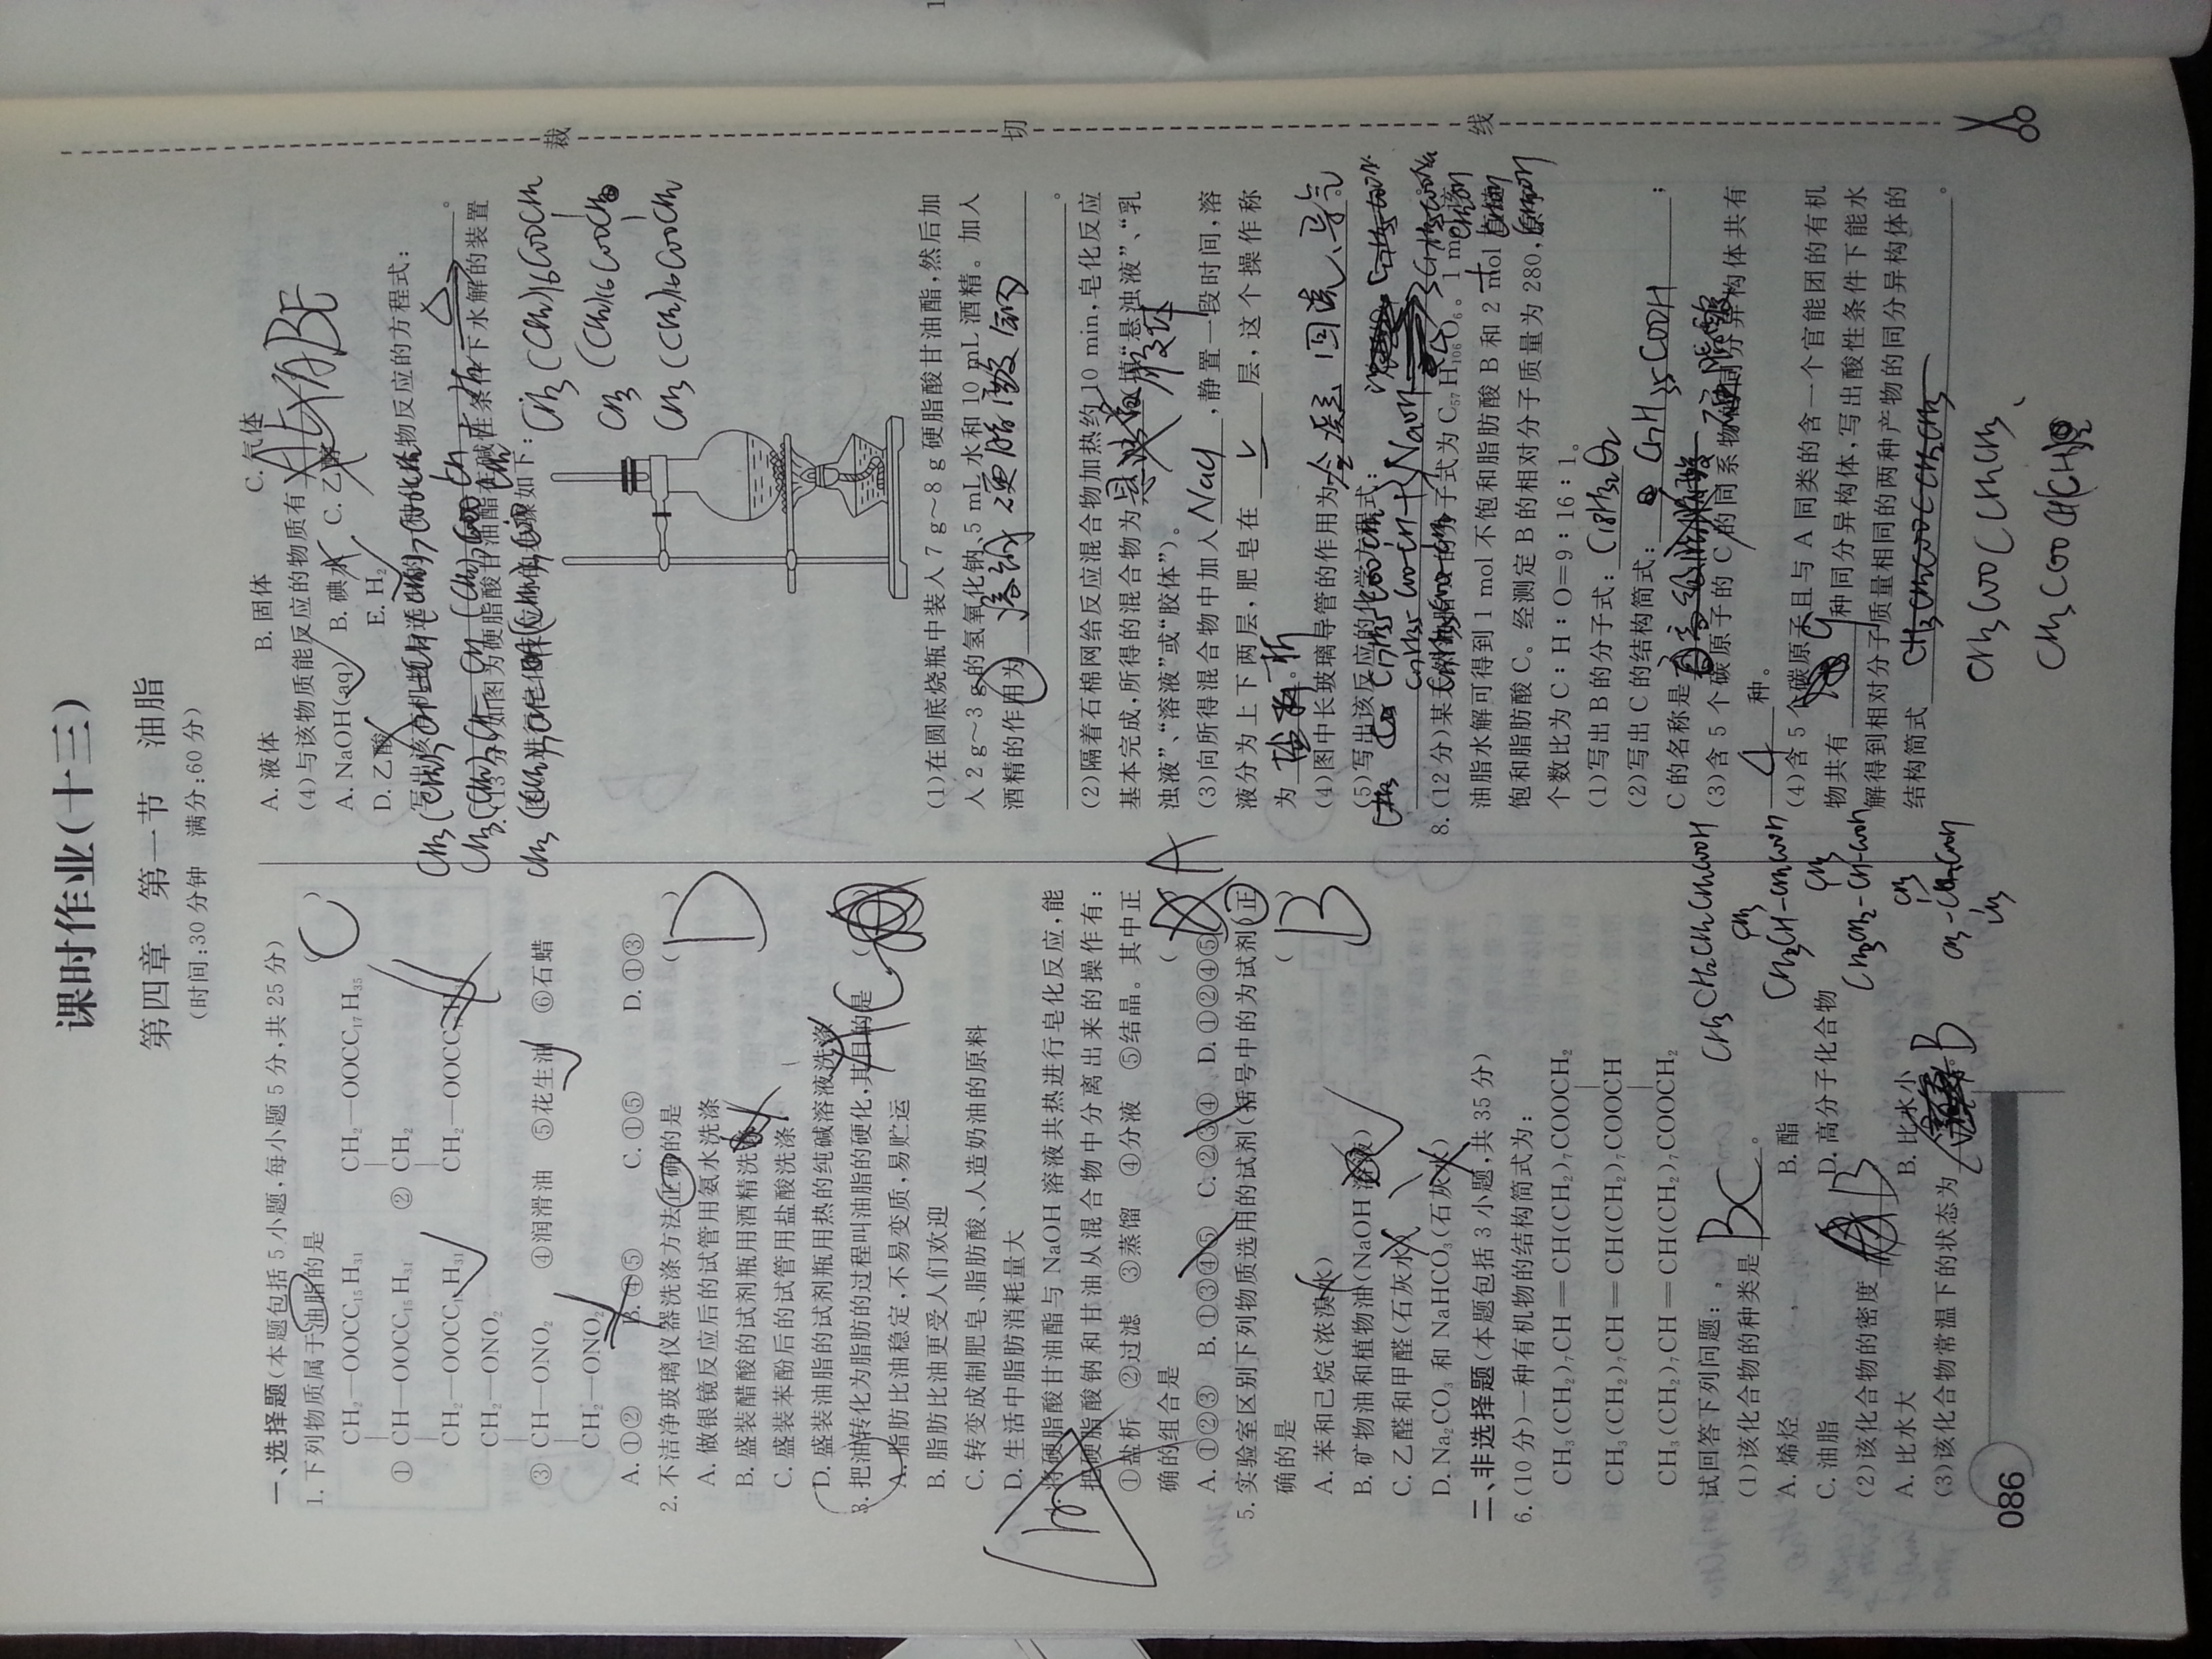 课时作业(十三)
第四章 第一节 油脂
(时间:30分钟 满分:60分)
一、选择题(本题包括5小题,每小题5分,共25分)
1.下列物质属于油脂的是 ( C )
CH₂—OOCC₁₅H₃₁ CH₂—OOCC₁₇H₃₅
① CH—OOCC₁₅H₃₁ ② CH₂
CH₂—OOCC₁₅H₃₁ CH₂—OOCC₁₇H₃₅
CH₂—ONO₂
③ CH—ONO₂ ④润滑油 ⑤花生油 ⑥石蜡
CH₂—ONO₂
A.①② B.④⑤ C.①⑤ D.①③
2.不洁净玻璃仪器洗涤方法正确的是 ( D )
A.做银镜反应后的试管用氨水洗涤
B.盛装醋酸的试剂瓶用酒精洗涤
C.盛装苯酚后的试管用盐酸洗涤
D.盛装油脂的试剂瓶用热的纯碱溶液洗涤
3.把油转化为脂肪的过程叫油脂的硬化,其目的是 ( ) AC
A.脂肪比油稳定,不易变质,易贮运
B.脂肪比油更受人们欢迎
C.转变成制肥皂、脂肪酸、人造奶油的原料
D.生活中脂肪消耗量大
4.将硬脂酸甘油酯与NaOH溶液共热进行皂化反应,能
把硬脂酸钠和甘油从混合物中分离出来的操作有:
①盐析 ②过滤 ③蒸馏 ④分液 ⑤结晶。其中正
确的组合是 ( ) A
A.①②③ B.①③④⑤ C.②③④ D.①②④⑤
5.实验室区别下列物质选用的试剂(括号中的为试剂)正
确的是 ( B )
A.苯和己烷(浓溴水)
B.矿物油和植物油(NaOH溶液)
C.乙醛和甲醛(石灰水)
D.Na₂CO₃和NaHCO₃(石灰水)
二、非选择题(本题包括3小题,共35分)
6.(10分)一种有机物的结构简式为:
CH₃(CH₂)₇CH═CH(CH₂)₇COOCH₂
CH₃(CH₂)₇CH═CH(CH₂)₇COOCH
CH₃(CH₂)₇CH═CH(CH₂)₇COOCH₂
试回答下列问题:
(1)该化合物的种类是 BC 。
A.烯烃 B.酯
C.油脂 D.高分子化合物
(2)该化合物的密度 B
A.比水大 B.比水小
(3)该化合物常温下的状态为 B
086
A.液体 B.固体 C.气体
(4)与该物质能反应的物质有 ABE
A.NaOH(aq) B.碘水 C.乙醇
D.乙酸 E.H₂
写出该有机物与选项的一种化合物反应的方程式:
7.(13分)如图为硬脂酸甘油酯在碱性条件下水解的装置
图。进行皂化反应时的步骤如下:
CH₃(CH₂)16COOCH₂
CH₃(CH₂)16COOCH
CH₃(CH₂)16COOCH₂
(1)在圆底烧瓶中装入7 g~8 g硬脂酸甘油酯,然后加
入2 g~3 g的氢氧化钠、5 mL水和10 mL酒精。加入
酒精的作用为 溶解硬脂酸钠
。
(2)隔着石棉网给反应混合物加热约10 min,皂化反应
基本完成,所得的混合物为 胶体 (填“悬浊液”、“乳
浊液”、“溶液”或“胶体”)。
(3)向所得混合物中加入 NaCl ,静置一段时间,溶
液分为上下两层,肥皂在 上 层,这个操作称
为 盐析 。
(4)图中长玻璃导管的作用为 冷凝 回流、导气
(5)写出该反应的化学方程式:
8.(12分)某天然油脂A的分子式为C₅₇H₁₀₆O₆。1 mol该
油脂水解可得到1 mol不饱和脂肪酸B和2 mol直链
饱和脂肪酸C。经测定B的相对分子质量为280,原子
个数比为C∶H∶O=9∶16∶1。
(1)写出B的分子式: C₁₈H₃₂O₂
(2)写出C的结构简式: C₁₇H₃₅COOH ;
C的名称是 硬脂酸
(3)含5个碳原子的C的同系物的同分异构体共有
4 种。
(4)含5个碳原子且与A同类的含一个官能团的有机
物共有 9 种同分异构体,写出酸性条件下能水
解得到相对分子质量相同的两种产物的同分异构体的
结构简式 。
CH₃COOCH₂CH₂CH₃、
CH₃COOCH(CH₃)₂
裁
切
线